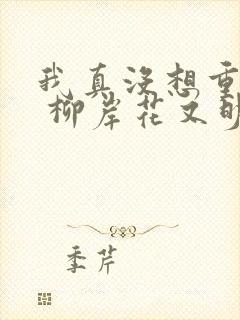 我真没想重
柳岸花又明
季芹